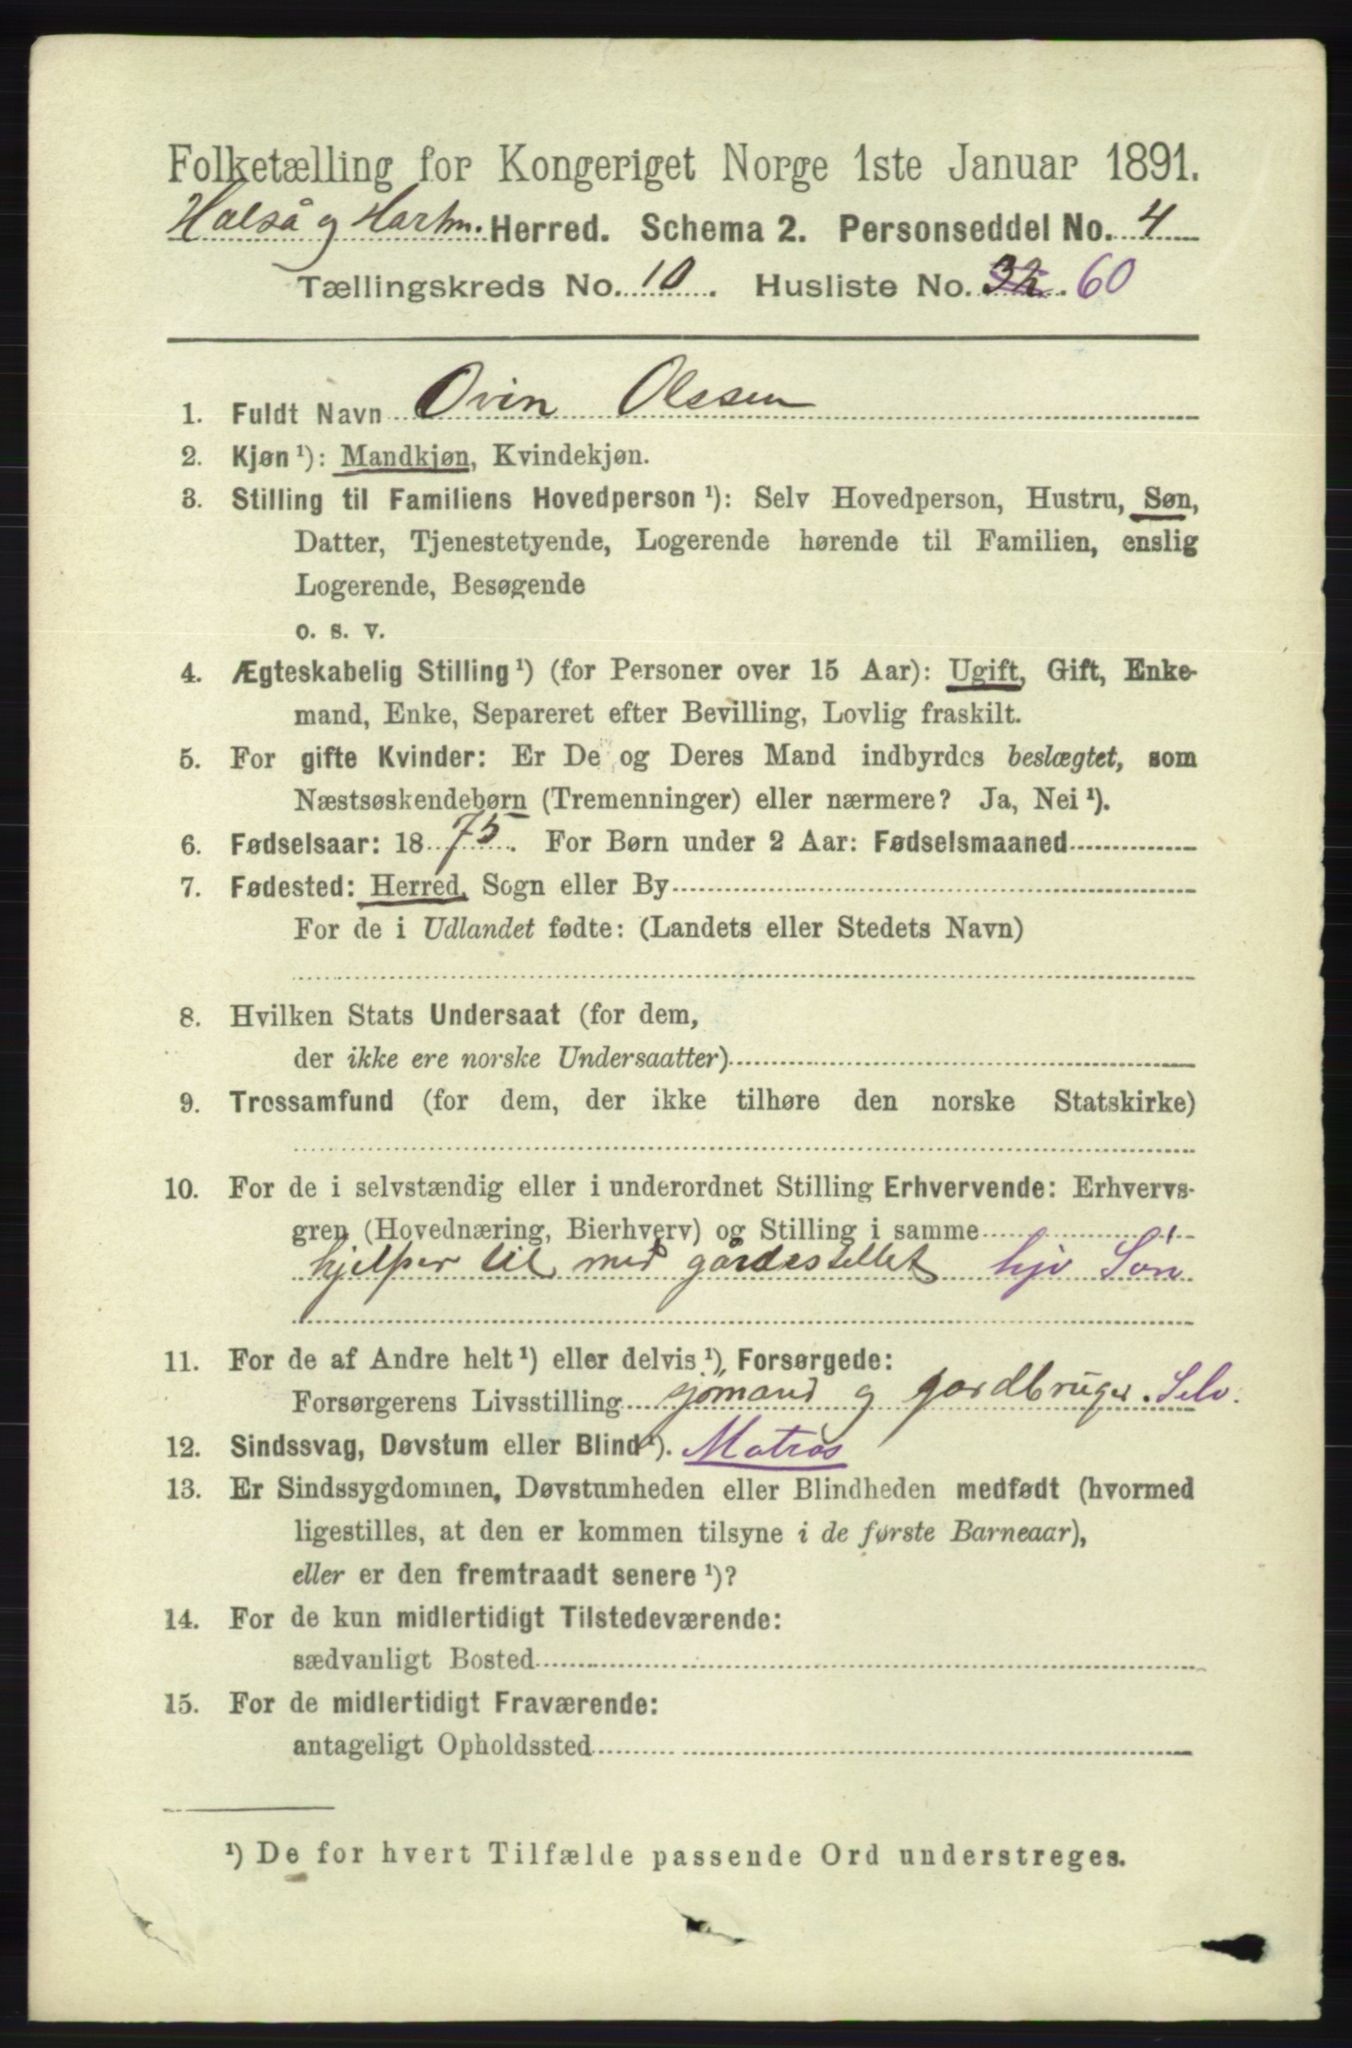 Folketælling for Kongeriget Norge 1ste Januar 1891.
Halså og Hartm. Herred. Schema 2. Personseddel No. 4
Tællingskreds No. 10. Husliste No. 32. 60
1. Fuldt Navn Ovin Olssen
2. Kjøn ¹): Mandkjøn, Kvindekjøn.
3. Stilling til Familiens Hovedperson ¹): Selv Hovedperson, Hustru, Søn,
Datter, Tjenestetyende, Logerende hørende til Familien, enslig
Logerende, Besøgende
o. s. v.
4. Ægteskabelig Stilling ¹) (for Personer over 15 Aar): Ugift, Gift, Enke-
mand, Enke, Separeret efter Bevilling, Lovlig fraskilt.
5. For gifte Kvinder: Er De og Deres Mand indbyrdes beslægtet, som
Næstsøskendebørn (Tremenninger) eller nærmere? Ja, Nei ¹).
6. Fødselsaar: 1875. For Børn under 2 Aar: Fødselsmaaned
7. Fødested: Herred, Sogn eller By
For de i Udlandet fødte: (Landets eller Stedets Navn)
8. Hvilken Stats Undersaat (for dem,
der ikke ere norske Undersaatter)
9. Trossamfund (for dem, der ikke tilhøre den norske Statskirke)
10. For de i selvstændig eller i underordnet Stilling Erhvervende: Erhvervs-
gren (Hovednæring, Bierhverv) og Stilling i samme
hjelper til med gårdestellet hjv Søn
11. For de af Andre helt ¹) eller delvis ¹) Forsørgede:
Forsørgerens Livsstilling sjømand og gardbruger. Selv.
12. Sindssvag, Døvstum eller Blind ¹). Matros
13. Er Sindssygdommen, Døvstumheden eller Blindheden medfødt (hvormed
ligestilles, at den er kommen tilsyne i de første Barneaar),
eller er den fremtraadt senere ¹)?
14. For de kun midlertidigt Tilstedeværende:
sædvanligt Bosted
15. For de midlertidigt Fraværende:
antageligt Opholdssted
¹) De for hvert Tilfælde passende Ord understreges.